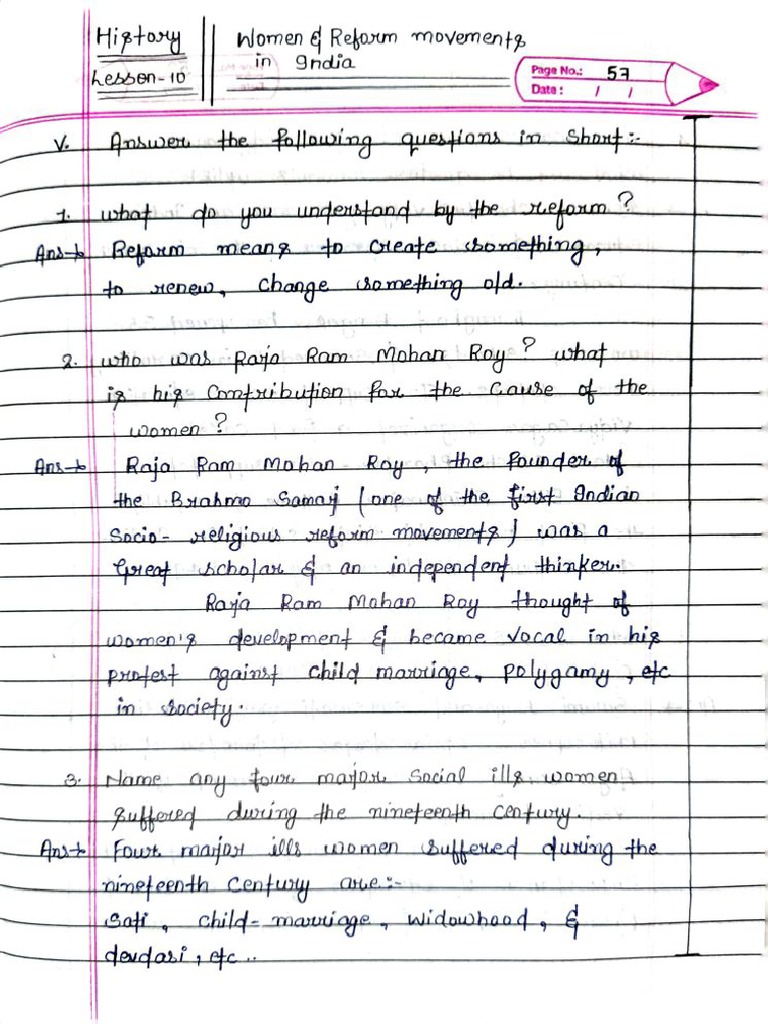 History
Lesson-10
Women & Reform movements
in India
Page No.: 57
Date: / /
V. Answer the following questions in Short:-
1. what do you understand by the reform?
Ans→ Reform means to create something,
to renew, change something old.
2. who was Raja Ram Mohan Roy? what
is his contribution for the cause of the
women?
Ans→ Raja Ram Mohan Roy, the founder of
the Brahmo Samaj (one of the first Indian
Socio-religious reform movements) was a
Great scholar & an independent thinker.
Raja Ram Mohan Roy thought of
women's development & became vocal in his
protest against child marriage, polygamy, etc
in society.
3. Name any four major social ills women
suffered during the nineteenth century.
Ans→ Four major ills women suffered during the
nineteenth Century are:-
Sati, child-marriage, widowhood, &
devdasi, etc..